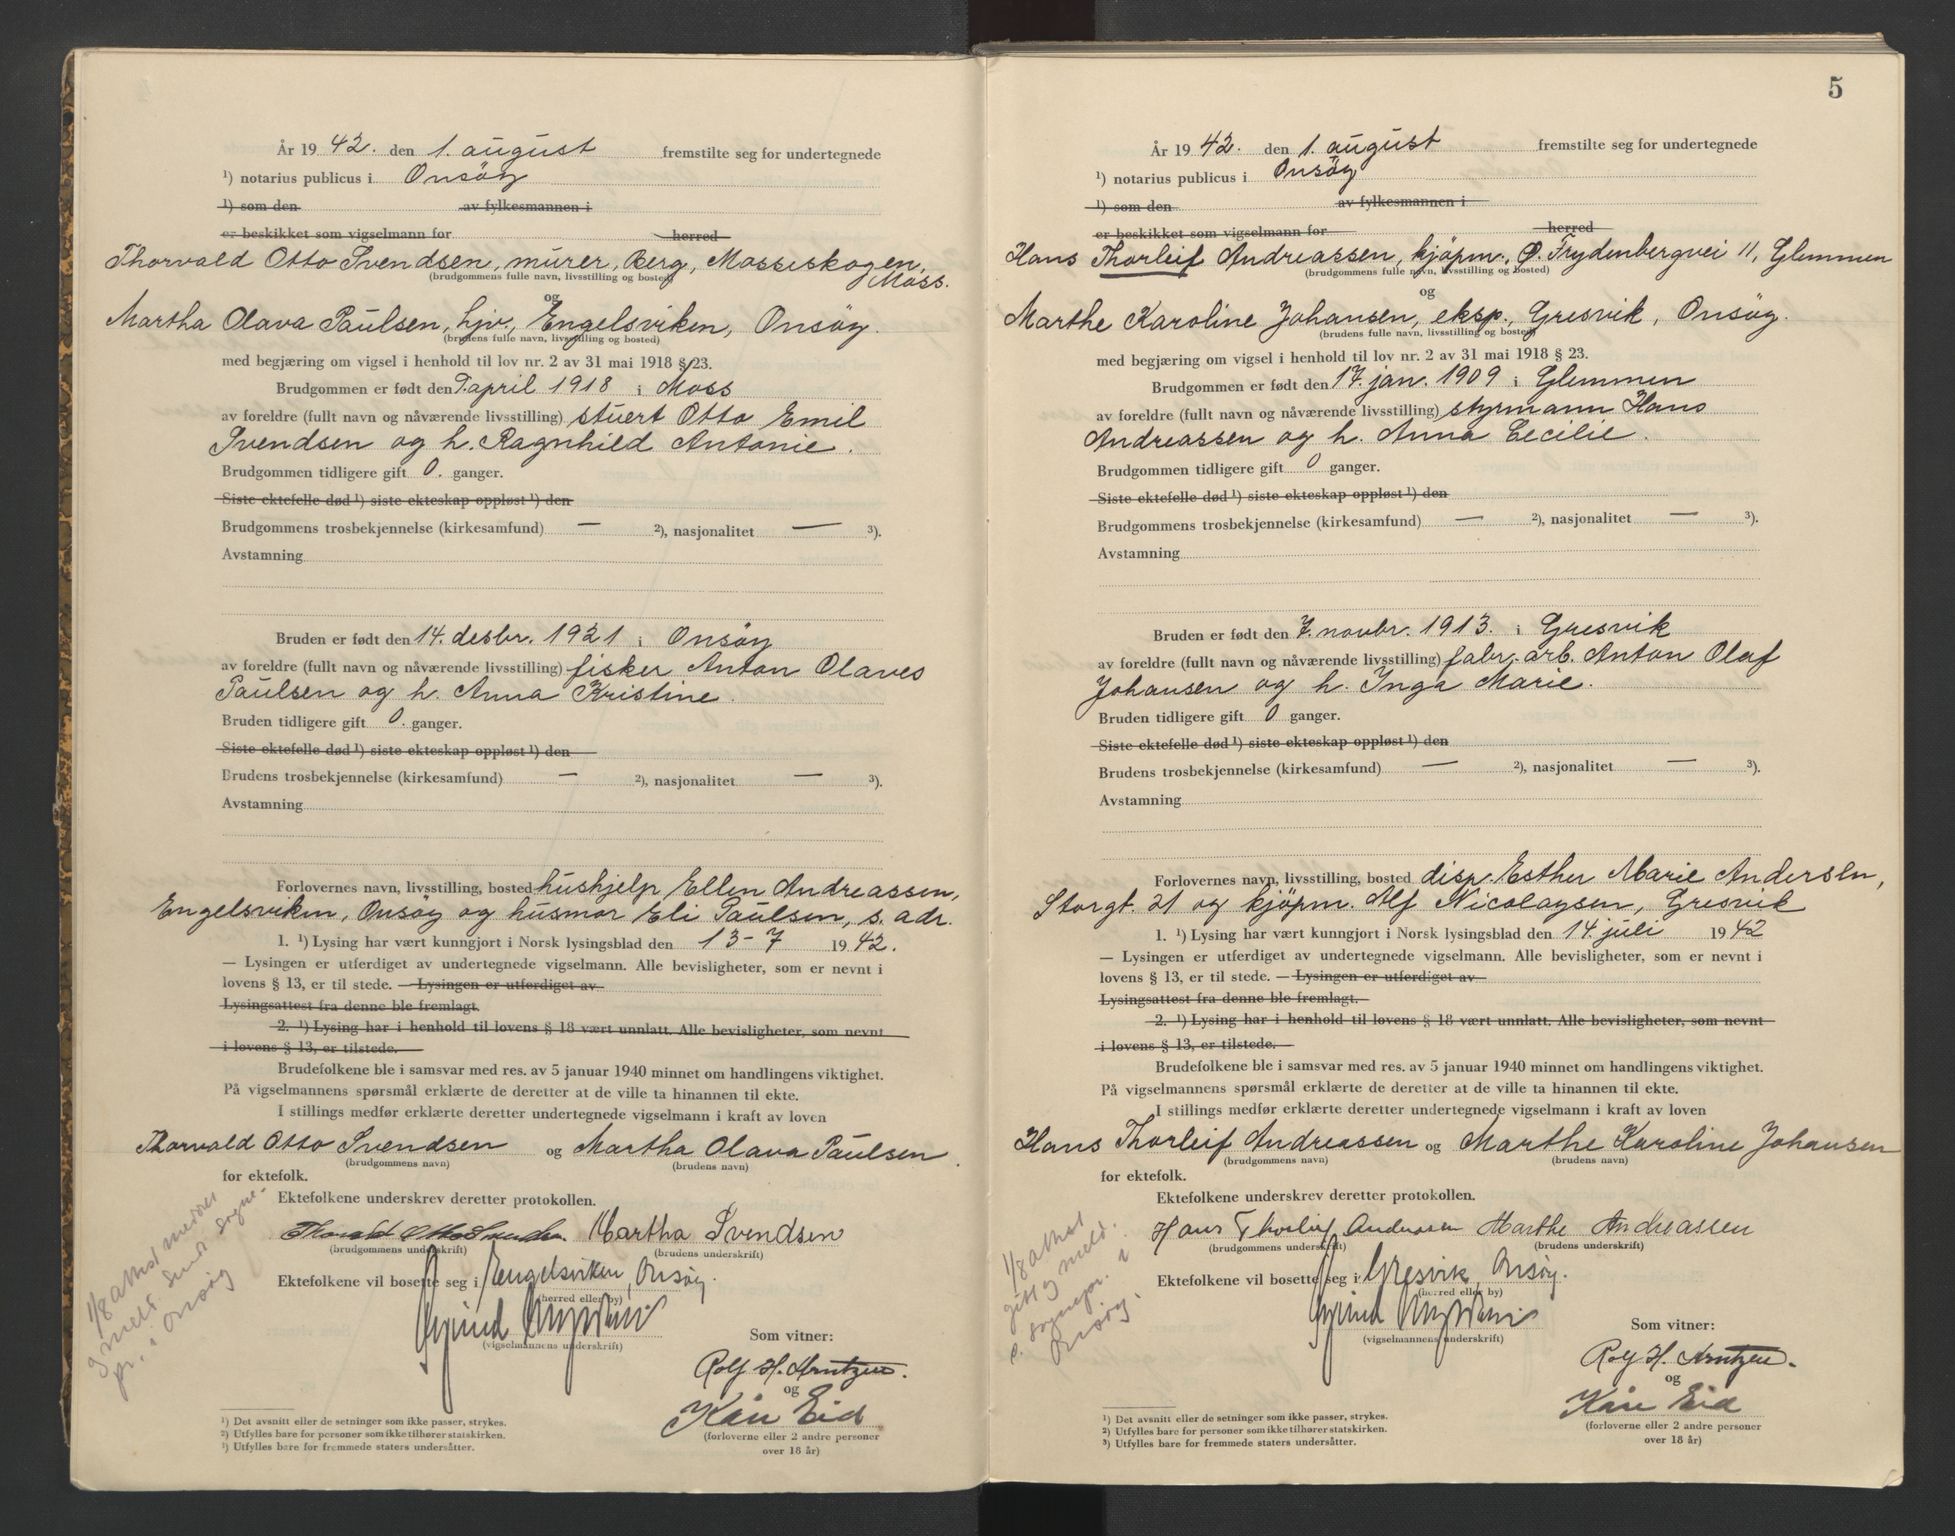 År 1942. den 1. august fremstilte seg for undertegnede
¹) notarius publicus i Onsöy
¹) som den av fylkesmannen i
er beskikket som vigselmann for herred
Thorvald Otto Svendsen, murer, Berg, Mosseskogen,
(brudgommens fulle navn, livsstilling og bosted) Moss.
og
Martha Olava Paulsen, hjv., Engelsviken, Onsöy.
(brudens fulle navn, livsstilling og bosted)
med begjæring om vigsel i henhold til lov nr. 2 av 31 mai 1918 § 23.
Brudgommen er født den 9. april 1918 i Moss
av foreldre (fullt navn og nåværende livsstilling) stuert Otto Emil
Svendsen og h. Ragnhild Antonie.
Brudgommen tidligere gift 0. ganger.
Siste ektefelle død ¹) siste ekteskap oppløst ¹) den
Brudgommens trosbekjennelse (kirkesamfund) — ²), nasjonalitet — ³).
Avstamning
Bruden er født den 14. desbr. 1921 i Onsöy
av foreldre (fullt navn og nåværende livsstilling) fisker Anton Olaves
Paulsen og h. Anna Kristine.
Bruden tidligere gift 0. ganger.
Siste ektefelle død ¹) siste ekteskap oppløst ¹) den
Brudens trosbekjennelse (kirkesamfund) — ²), nasjonalitet — ³).
Avstamning
Forlovernes navn, livsstilling, bosted hushjelp Ellen Andreassen,
Engelsviken, Onsöy og husmor Eli Paulsen, s. adr.
1. ¹) Lysing har vært kunngjort i Norsk lysingsblad den 13-7 1942.
— Lysingen er utferdiget av undertegnede vigselmann. Alle bevisligheter, som er nevnt i
lovens § 13, er til stede. — Lysingen er utferdiget av
Lysingsattest fra denne ble fremlagt.
2. ¹) Lysing har i henhold til lovens § 18 vært unnlatt. Alle bevisligheter, som nevnt
i lovens § 13, er tilstede.
Brudefolkene ble i samsvar med res. av 5 januar 1940 minnet om handlingens viktighet.
På vigselmannens spørsmål erklærte de deretter at de ville ta hinannen til ekte.
I stillings medfør erklærte deretter undertegnede vigselmann i kraft av loven
Thorvald Otto Svendsen og Martha Olava Paulsen.
(brudgommens navn) (brudens navn)
for ektefolk.
Ektefolkene underskrev deretter protokollen.
Thorvald Otto Svendsen Martha Svendsen
(brudgommens underskrift) (brudens underskrift)
Ektefolkene vil bosette seg i Engelsviken, Onsöy.
(herred eller by)
(vigselmannens underskrift)
Som vitner:
Rolf H. Arntzen.
og
Kåre Eid
(forloverne eller 2 andre personer
over 18 år)
1/8 attest
pr. i Onsöy
¹) Det avsnitt eller de setninger som ikke passer, strykes.
²) Utfylles bare for personer som ikke tilhører statskirken.
³) Utfylles bare for fremmede staters undersåtter.
5
År 1942. den 1. august fremstilte seg for undertegnede
¹) notarius publicus i Onsöy
¹) som den av fylkesmannen i
er beskikket som vigselmann for herred
Hans Thorleif Andreassen, kjöpm., Ø. Frydenbergvei 11, Glemmen
(brudgommens fulle navn, livsstilling og bosted)
og
Marthe Karoline Johansen, eksp., Gresvik, Onsöy.
(brudens fulle navn, livsstilling og bosted)
med begjæring om vigsel i henhold til lov nr. 2 av 31 mai 1918 § 23.
Brudgommen er født den 17. jan. 1909 i Glemmen
av foreldre (fullt navn og nåværende livsstilling) styrmann Hans
Andreassen og h. Anna Cecilie.
Brudgommen tidligere gift 0 ganger.
Siste ektefelle død ¹) siste ekteskap oppløst ¹) den
Brudgommens trosbekjennelse (kirkesamfund) — ²), nasjonalitet — ³).
Avstamning
Bruden er født den 7. novbr. 1913. i Gresvik
av foreldre (fullt navn og nåværende livsstilling) fabr.arb. Anton Olaf
Johansen og h. Inga Marie.
Bruden tidligere gift 0 ganger.
Siste ektefelle død ¹) siste ekteskap oppløst ¹) den
Brudens trosbekjennelse (kirkesamfund) — ²), nasjonalitet — ³).
Avstamning
Forlovernes navn, livsstilling, bosted disp. Esther Marie Andersen,
Storgt. 21 og kjöpm. Alf Nicolaysen, Gresvik
1. ¹) Lysing har vært kunngjort i Norsk lysingsblad den 14. juli 1942
— Lysingen er utferdiget av undertegnede vigselmann. Alle bevisligheter, som er nevnt i
lovens § 13, er til stede. — Lysingen er utferdiget av
Lysingsattest fra denne ble fremlagt.
2. ¹) Lysing har i henhold til lovens § 18 vært unnlatt. Alle bevisligheter, som nevnt
i lovens § 13, er tilstede.
Brudefolkene ble i samsvar med res. av 5 januar 1940 minnet om handlingens viktighet.
På vigselmannens spørsmål erklærte de deretter at de ville ta hinannen til ekte.
I stillings medfør erklærte deretter undertegnede vigselmann i kraft av loven
Hans Thorleif Andreassen og Marthe Karoline Johansen
(brudgommens navn) (brudens navn)
for ektefolk.
Ektefolkene underskrev deretter protokollen.
Hans Thorleif Andreassen Marthe Andreassen
(brudgommens underskrift) (brudens underskrift)
Ektefolkene vil bosette seg i Gresvik, Onsöy.
(herred eller by)
(vigselmannens underskrift)
Som vitner:
Rolf H. Arntzen.
og
Kåre Eid
(forloverne eller 2 andre personer
over 18 år)
1/8 attest
gitt og meld.
sognepr. i
Onsöy.
¹) Det avsnitt eller de setninger som ikke passer, strykes.
²) Utfylles bare for personer som ikke tilhører statskirken.
³) Utfylles bare for fremmede staters undersåtter.